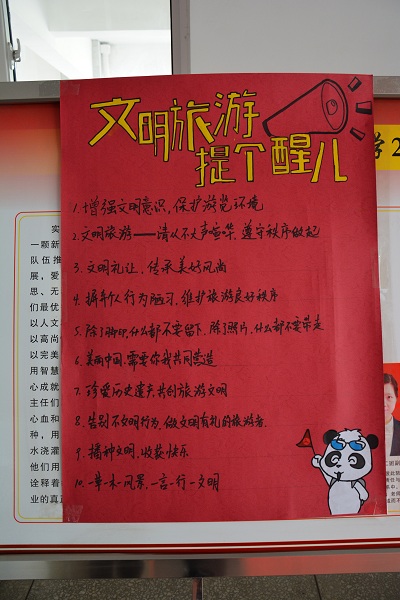 文明旅游
提个醒儿
1.增强文明意识,保护游览环境
2.文明旅游——请从不大声喧哗,遵守秩序做起
3.文明礼让,传承美好风尚
4.摒个人行为陋习,维护旅游良好秩序
5.除了脚印,什么都不要留下,除了照片,什么都不要带走
6.美丽中国,需要你我共同营造
7.珍爱历史遗夫共创旅游文明
8.告别不文明行为,做文明有礼的旅游者.
9.播种文明,收获快乐
10.一草一木一风景,一言一行一文明
学2
实
一颗新
队伍推
展,爱
思、无
们最优
以人文
以高尚
以完美
用智慧
心成就
主任们
心血和
种,用
水浇灌
他们用
诠释着
业的真